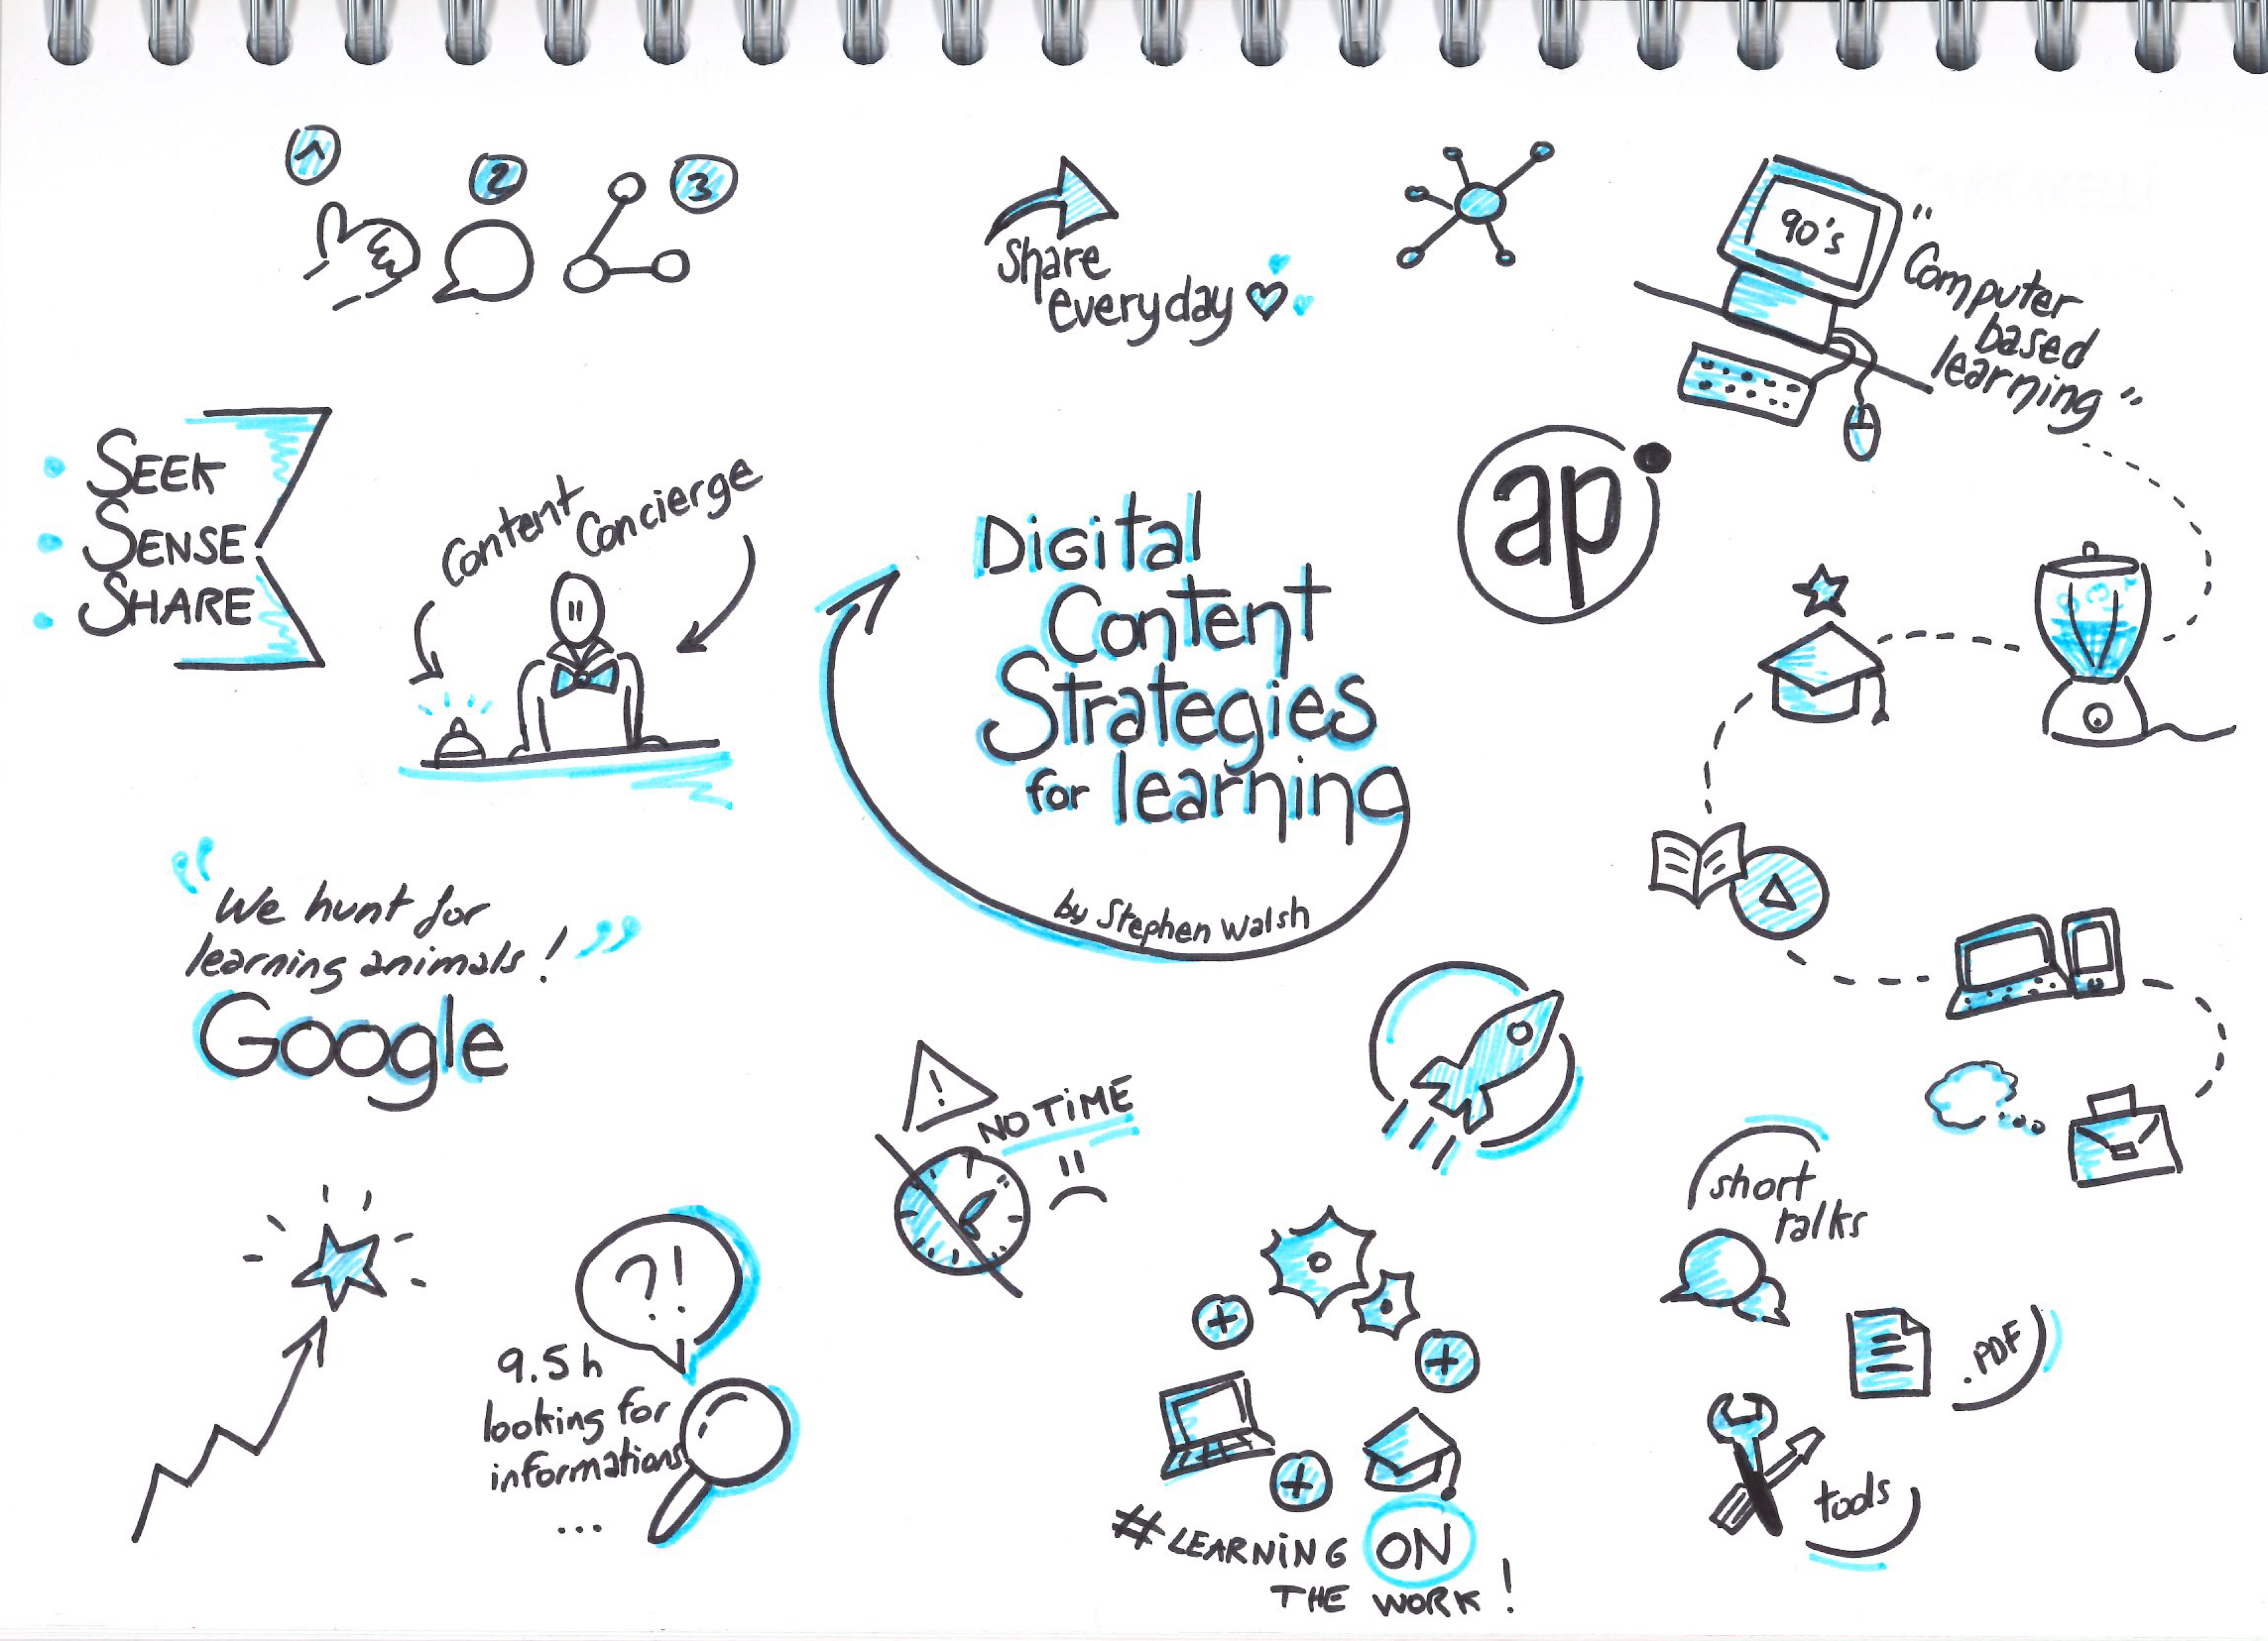 1
2
3
Share
everyday
90's
"Computer
based
learning"
SEEK
SENSE
SHARE
Content
Concierge
Digital
Content
Strategies
for learning
by Stephen Walsh
api
"We hunt for
learning animals!"
Google
!
NO TiME
?!
9.5h
looking for
informations
...
short
talks
.PDF
tools
#LEARNiNG ON
THE WORK!